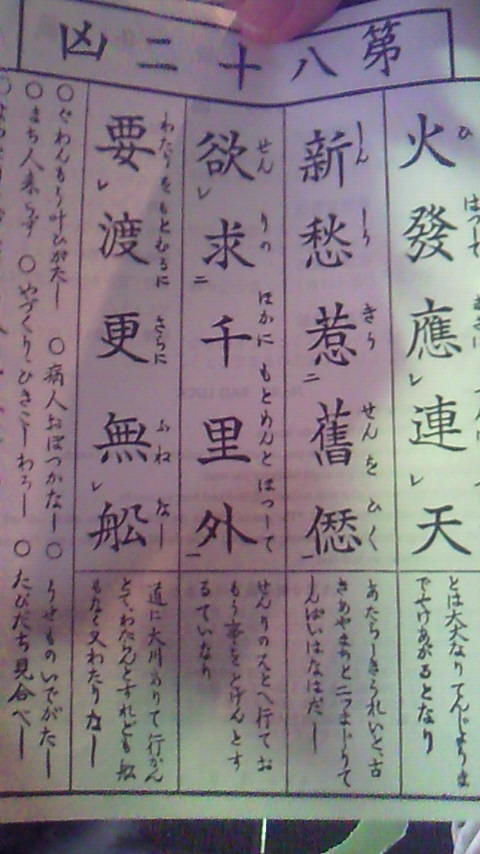 第八十二凶
火發應連天
ひ はつして
とは大火なりてんじやうま
でやけあがるとなり
新愁惹舊愆
しん しう きう せんを ひく
あたらしきうれいと、古
きあやまちと二つまじりて
しんぱいはなはだし
欲求千里外
せん りの ほかに もとめんと ほつして
せんりのそとへ行てお
もう事をとげんとす
るていなり
要渡更無舩
わたりをもとむるに さらに ふね なし
道に大川ありて行かん
とて、わたらんとすれども船
もなく又わたりなし
○ぐわんもう叶ひがたし ○病人おぼつかなし ○うせものいでがたし
○まち人来らず ○やづくりひきこしわろし ○たびだち見合べし